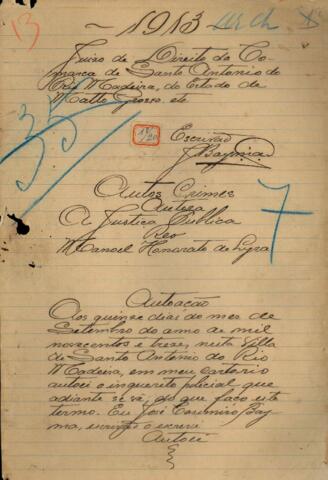 13
- 1913
Juizo de Direito da Co-
marca de Santo Antonio do
Rio Madeira, do Estado de
Matto Grosso, etc
35
Escrivão
J Bayma
7
Autos Crimes
Autora
A Justiça Publica
Reo
Manoel Honorato de Lyra
Autoação
Aos quinse dias do mes de
Setembro do anno de mil
novecentos e treze, nesta Villa
de Santo Antonio do Rio
Madeira, em meu cartorio
autoei o inquerito policial que
adiante se vê, do que faço este
termo. Eu José Casimiro Bay
ma, escrivão o escrevi
Autoei